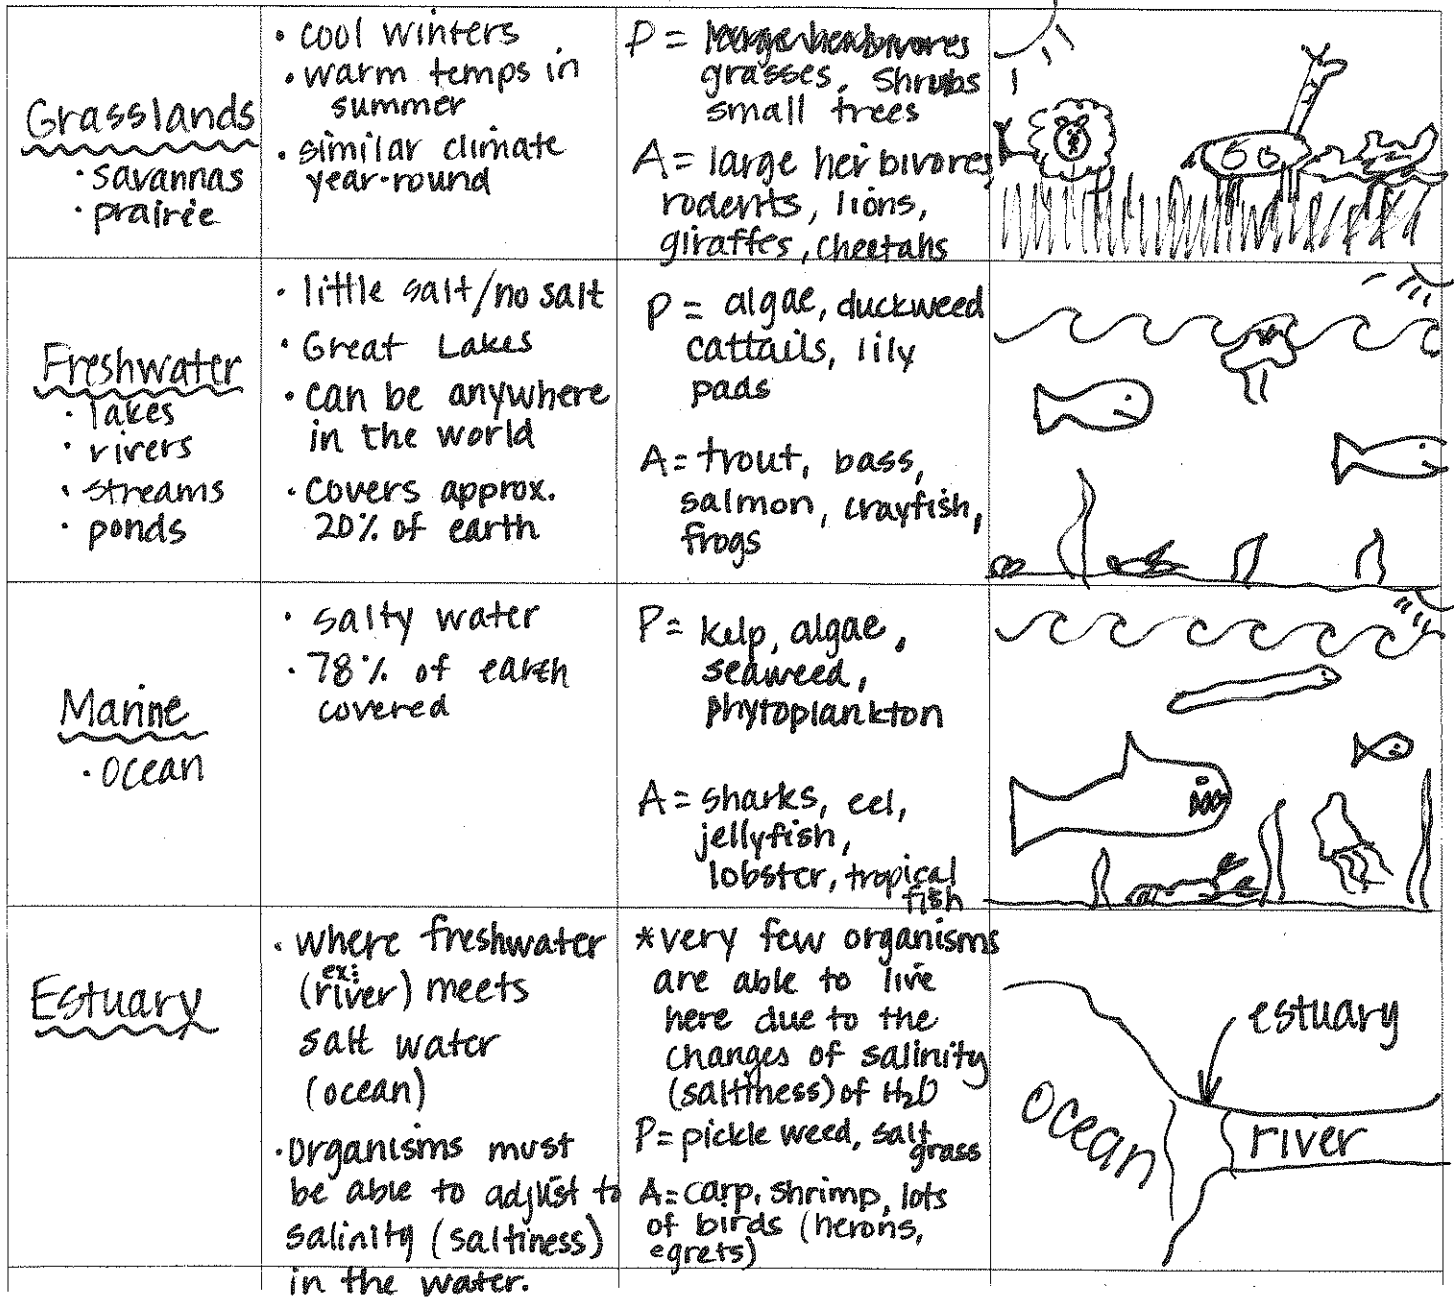 Grasslands
• savannas
• prairie
• cool winters
• warm temps in
summer
• similar climate
year-round
P =
grasses, shrubs
small trees
A = large herbivores,
rodents, lions,
giraffes, cheetahs
Freshwater
• lakes
• rivers
• streams
• ponds
• little salt/no salt
• Great Lakes
• can be anywhere
in the world
• covers approx.
20% of earth
P = algae, duckweed
cattails, lily
pads
A = trout, bass,
salmon, crayfish,
frogs
Marine
• ocean
• salty water
• 78% of earth
covered
P = kelp, algae,
seaweed,
phytoplankton
A = sharks, eel,
jellyfish,
lobster, tropical
fish
Estuary
• where freshwater
ex:
(river) meets
salt water
(ocean)
• organisms must
be able to adjust to
salinity (saltiness)
in the water.
*very few organisms
are able to live
here due to the
changes of salinity
(saltiness) of H₂O
P = pickle weed, salt
grass
A = carp, shrimp, lots
of birds (herons,
egrets)
estuary
ocean
river